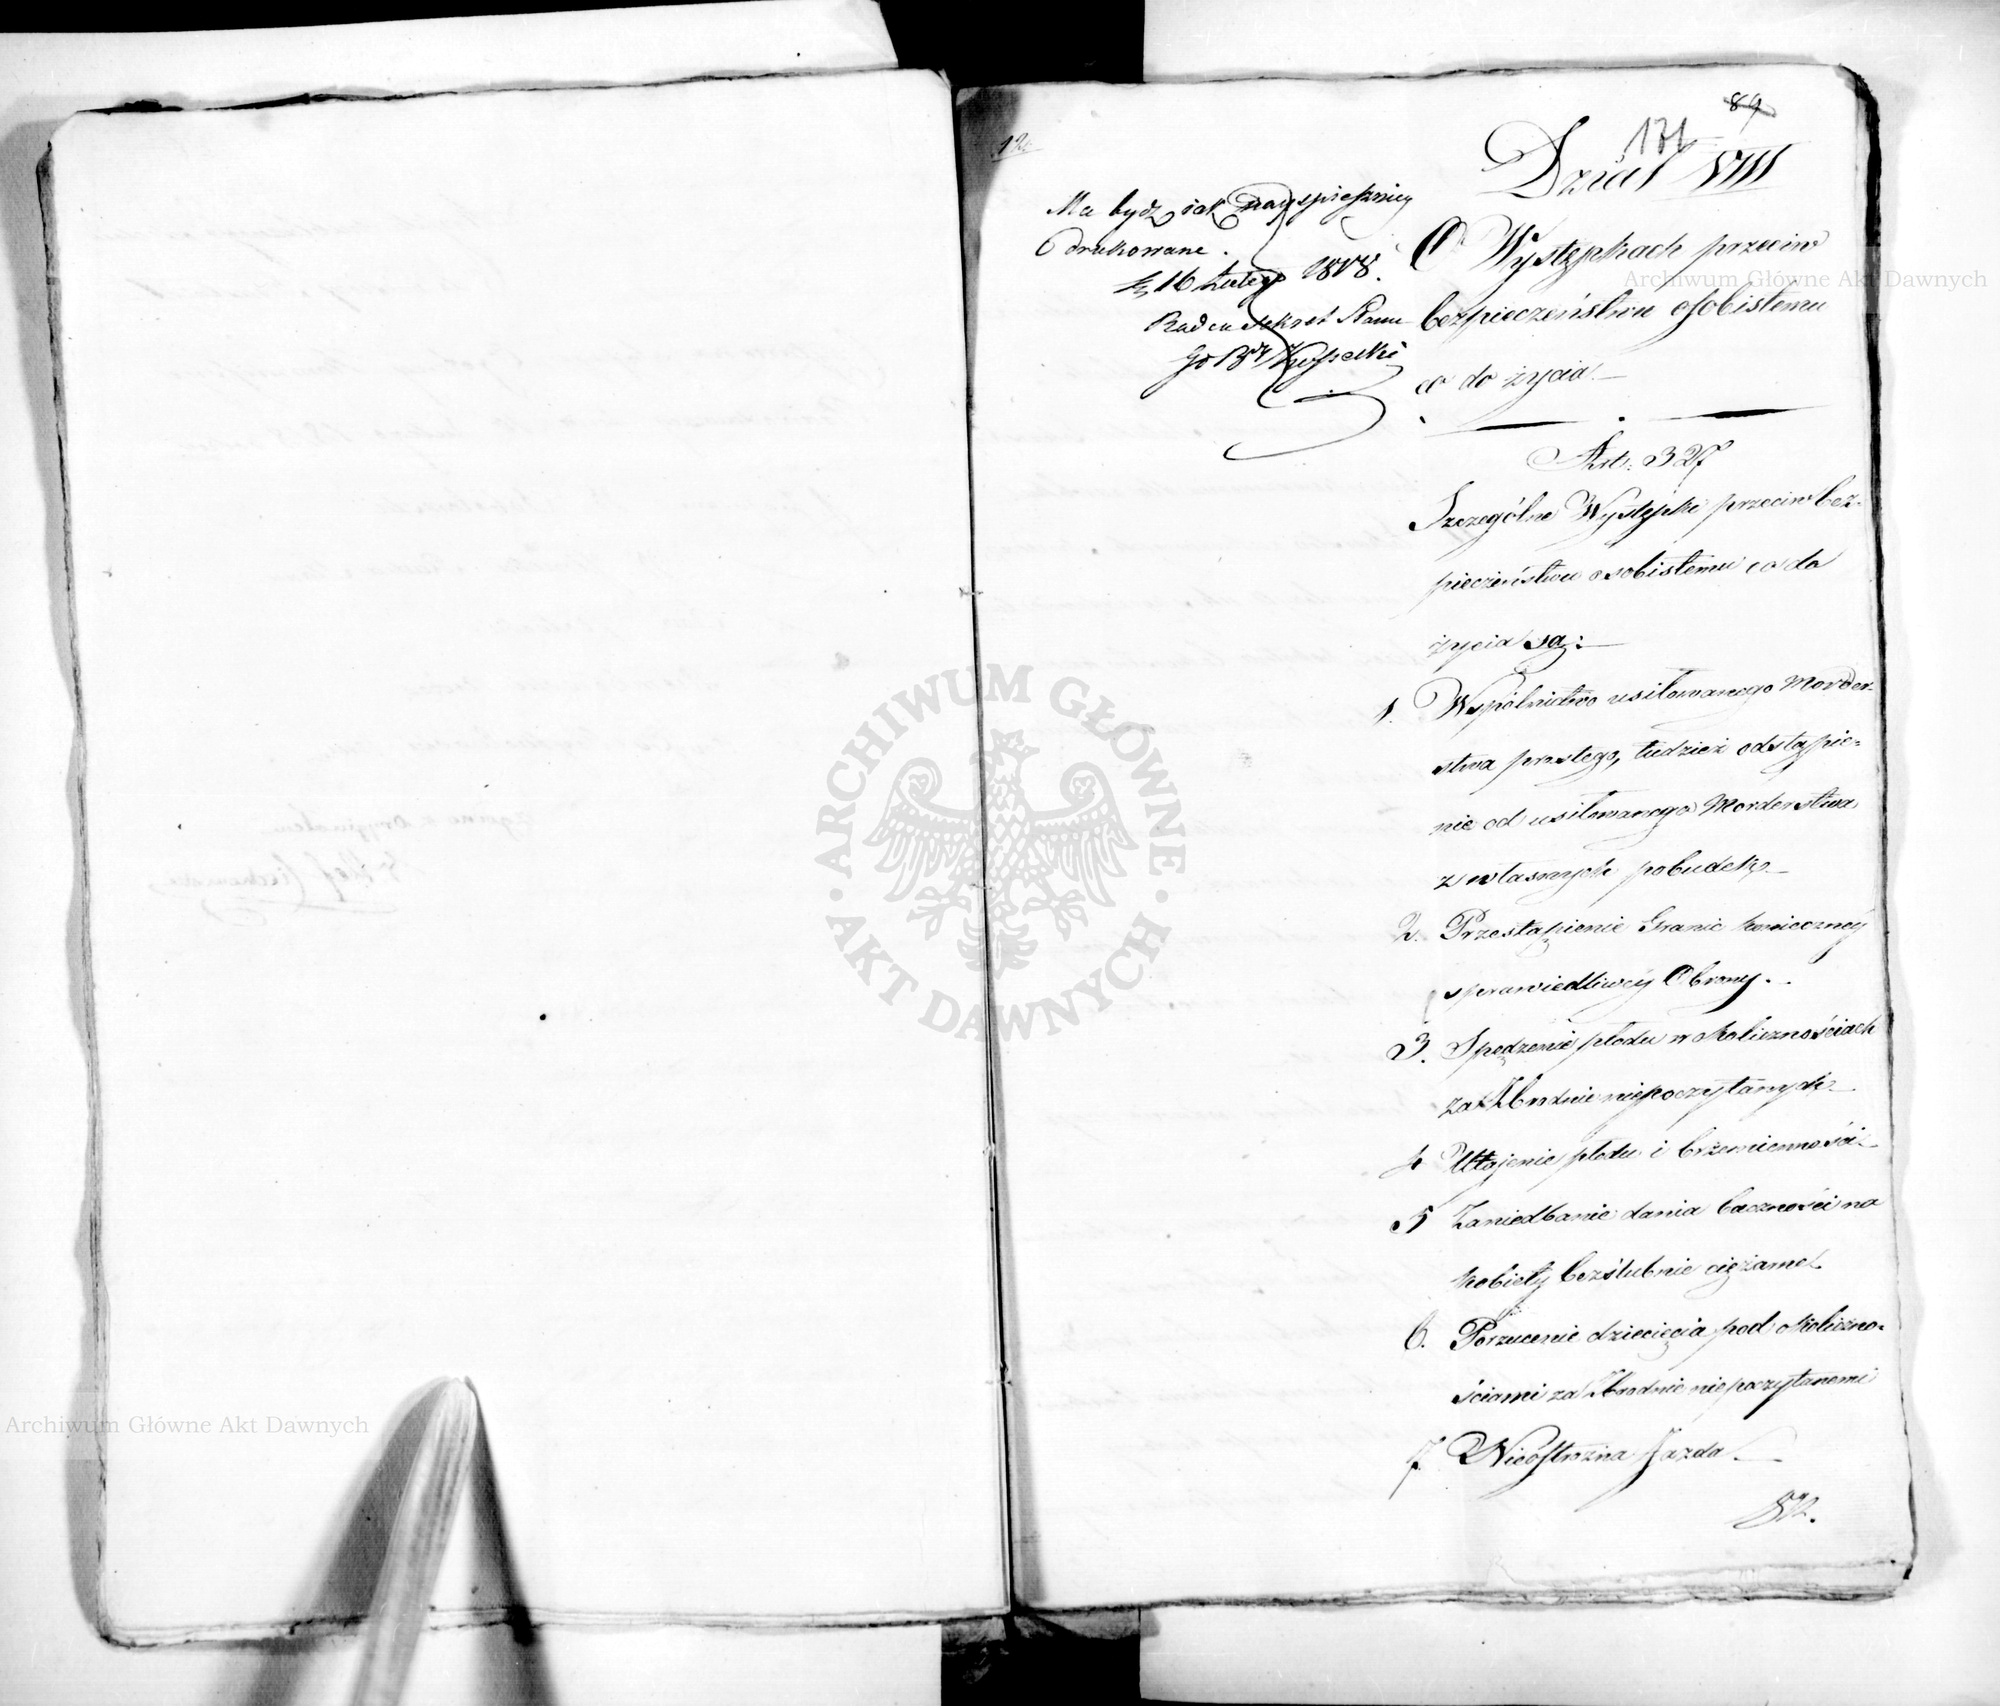 89
131
Dział VIII
Ma bydź iak nayspieszniey
drukowane.
16 Lutego 1818.
Radca Sekret Stanu
O Występkach przeciw
bezpieczeństwu osobistemu
co do życia.
Art. 327
Szczególne Występki przeciw bez-
pieczeństwu osobistemu co do
życia są:
1. Wspólnictwo usiłowanego Morder-
stwa prostego, tudzież odstąpie-
nie od usiłowanego Morderstwa
z własnych pobudek
2. Przestąpienie Granic konieczney
sprawiedliwey Obrony.
3. Spędzenie płodu w okolicznościach
za Zbrodnie niepoczytanych
4 Utajenie płodu i brzemienności
5 Zaniedbanie dania baczności na
kobiety bezślubnie ciężarne
6. Porzucenie dziecięcia pod okoliczno-
ściami za Zbrodnie niepoczytanemi
7. Nieostrożna Jazda
ARCHIWUM GŁÓWNE AKT DAWNYCH
Archiwum Główne Akt Dawnych
Archiwum Główne Akt Dawnych